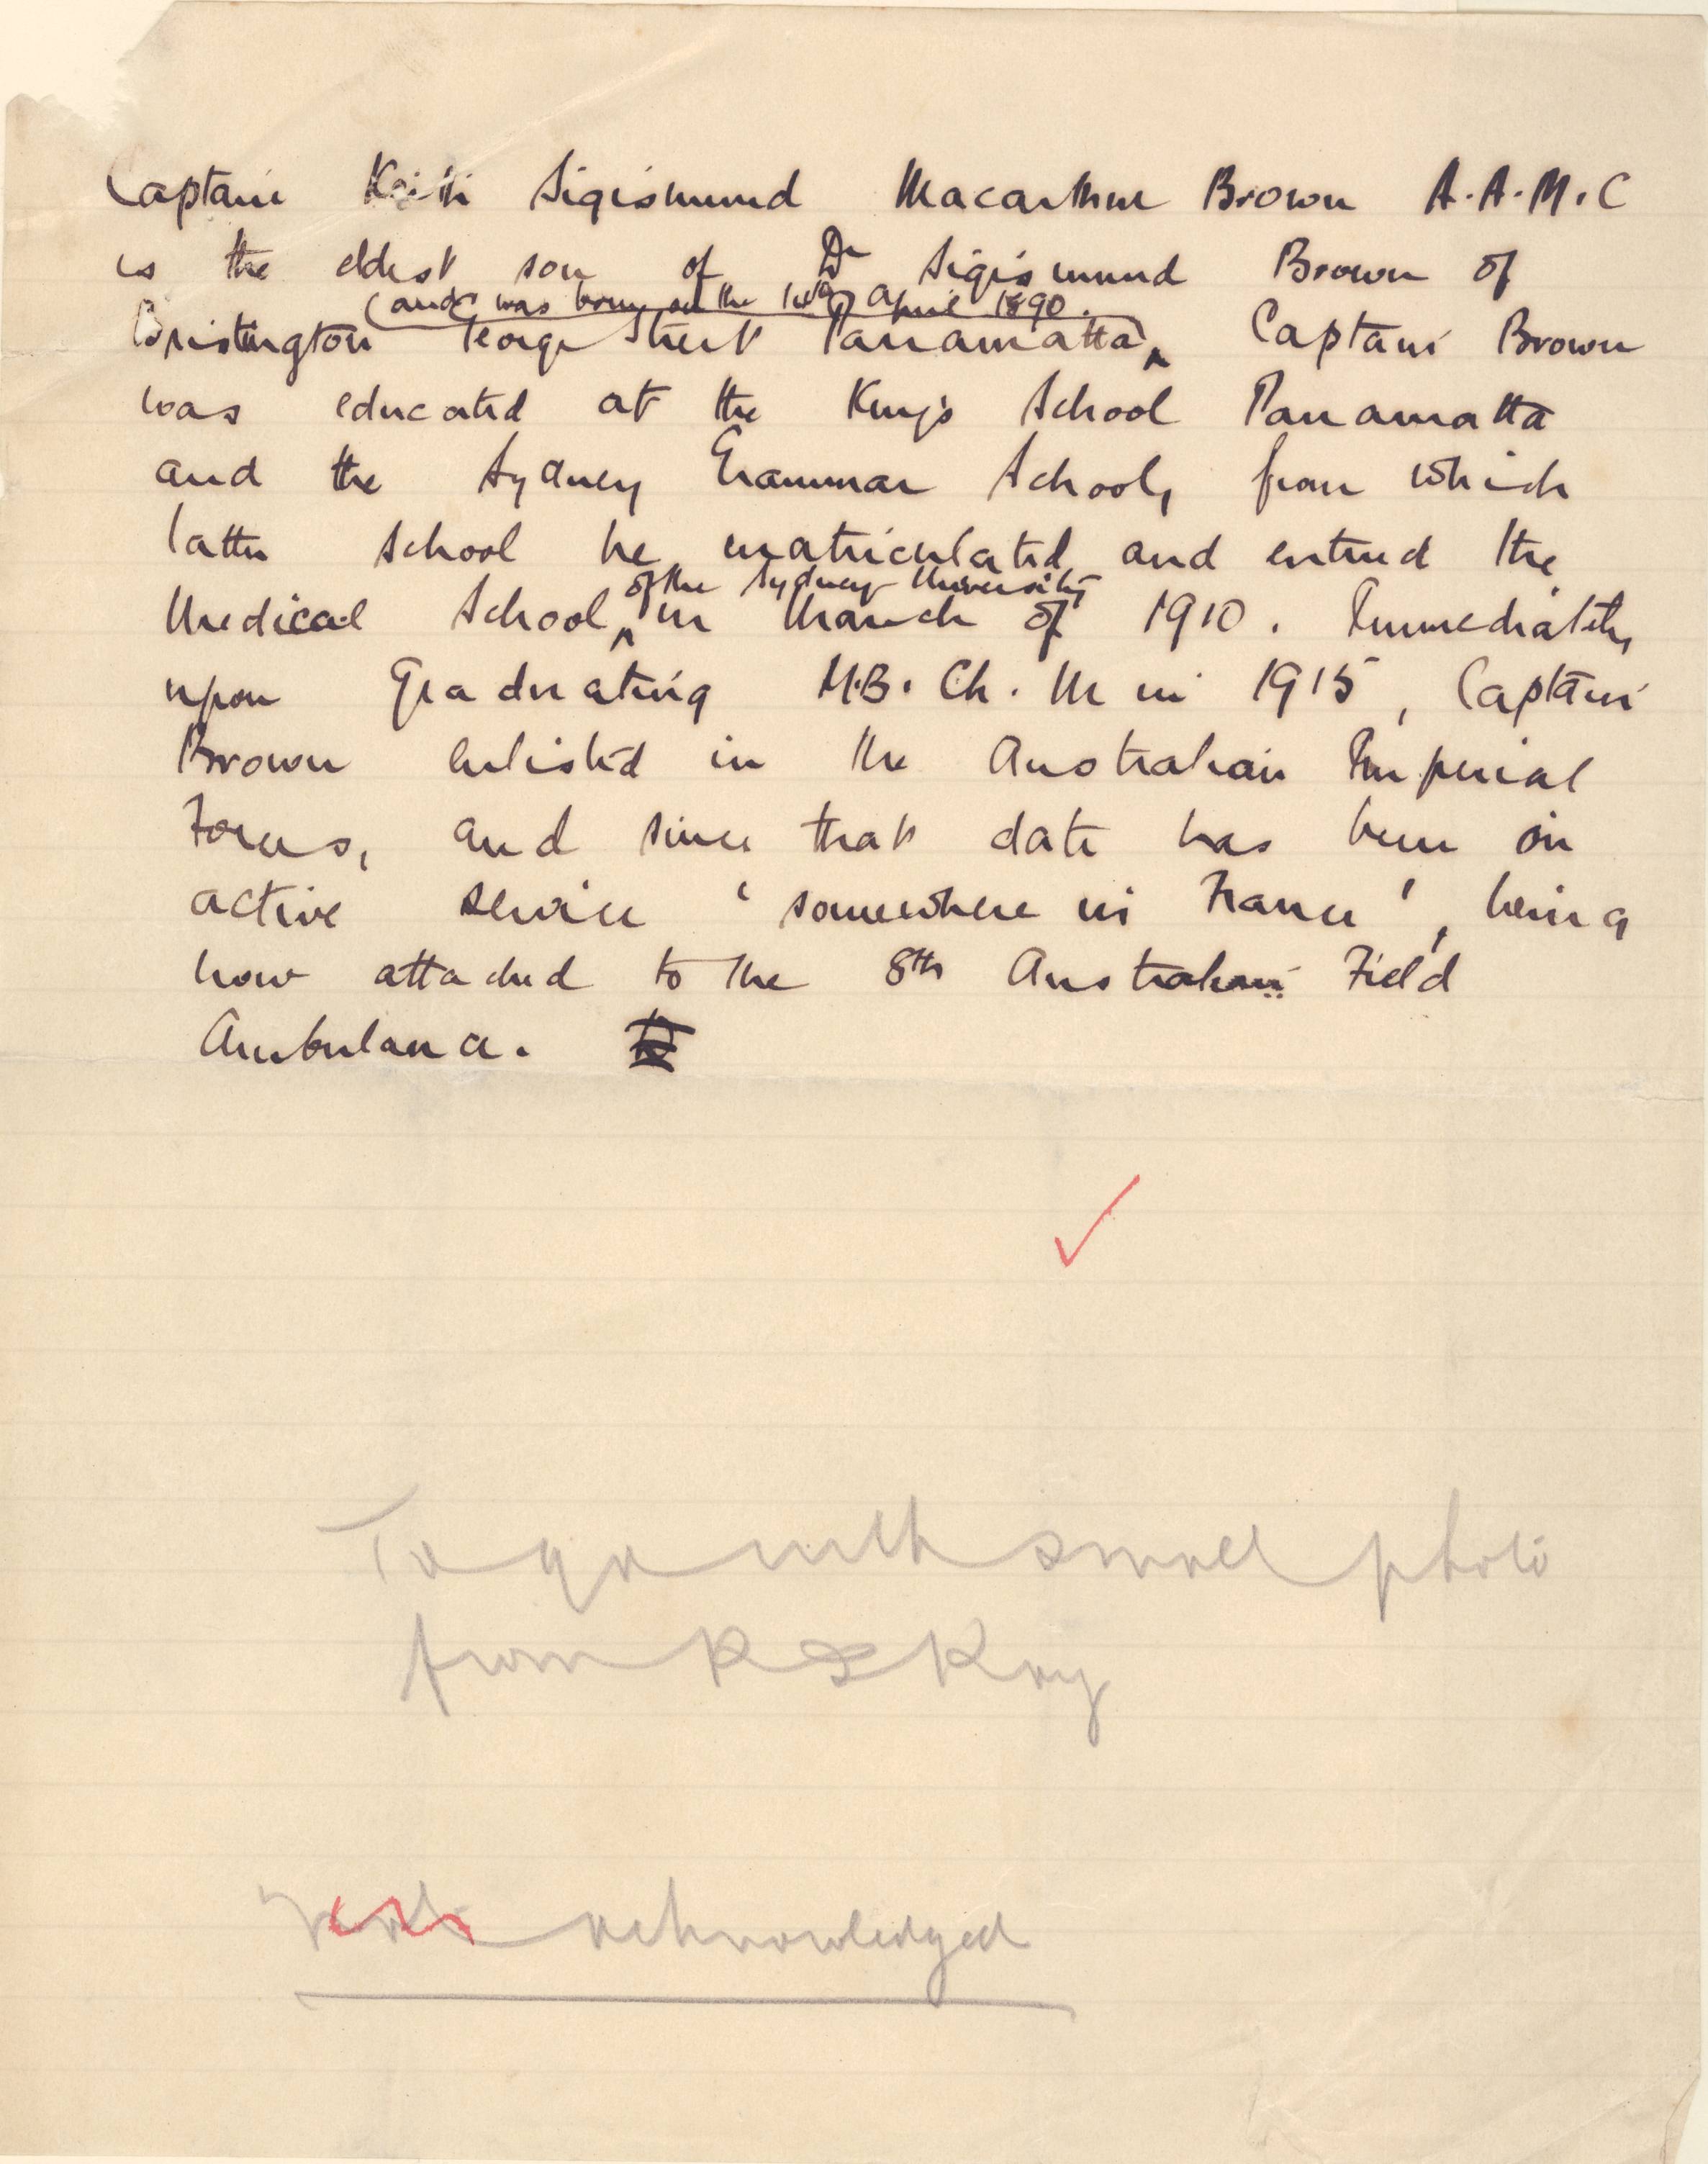 Captain Keith Sigismund Macarthur Brown A.A.M.C
is the eldest son of Dr Sigismund Brown of
(and was born on the April 1890.
Brislington George Street Parramatta Captain Brown
was educated at the King's School Parramatta
and the Sydney Grammar School, from which
latter school he matriculated and entered the
of the Sydney University
Medical School in March of 1910. Immediately
upon graduating M.B. Ch. M in 1915, Captain
Brown enlisted in the Australian Imperial
Forces, and since that date has been on
active service 'somewhere in France', being
now attached to the 8th Australian Field
Ambulance.
To go with small photo
from R S Kny
acknowledged